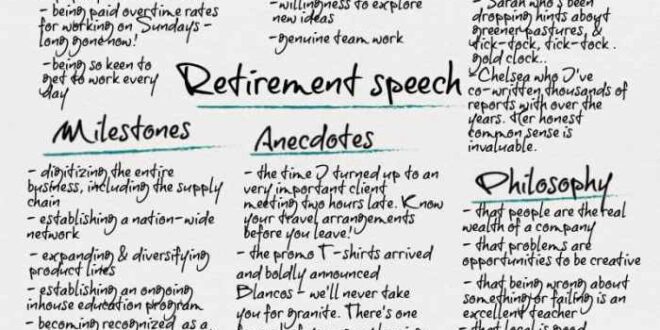 - being paid overtime rates
for working on Sundays -
long gone now!
- being so keen to
get to work every
day
- willingness to explore
new ideas
- genuine team work
- Sarah who's been
dropping hints about
greener pastures, &
tick-tock, tick-tock.
gold clock..
- Chelsea who I've
co-written thousands of
reports with over the
years. Her honest
common sense is
invaluable.
Retirement speech
Milestones
- digitizing the entire
business, including the supply
chain
- establishing a nation-wide
network
- expanding & diversifying
product lines
- establishing an ongoing
inhouse education program
- becoming recognized as a
Anecdotes
- the time I turned up to an
very important client
meeting two hours late. Know
your travel arrangements
before you leave!
- the promo T-shirts arrived
and boldly announced
Blancos - we'll never take
you for granite. There's one
Philosophy
- that people are the real
wealth of a company
- that problems are
opportunities to be creative
- that being wrong about
something or failing is an
excellent teacher